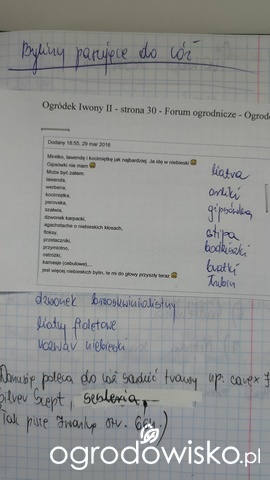 Byliny pasujące do róż
Ogródek Iwony II - strona 30 - Forum ogrodnicze - Ogrodo
Dodany 18:55, 29 mar 2016
Mirelko, lawendę i kocimiętkę jak najbardziej. Ja idę w niebieski
Gipsówki nie mam
Może być zatem:
lawenda,
werbena,
kocimiętka,
perovska,
szałwia,
dzwonek karpacki,
agachstache o niebieskich kłosach,
floksy,
przetaczniki,
przymiotno,
ostróżki,
kamasje (cebulowe)...
jest więcej niebieskich bylin, te mi do głowy przyszły teraz
liatra
orliki
gipsówka
stipa
bodziszki
bratki
łubin
dzwonek brzoskwiniolistny
fioletowe
niebieski
Danusia poleca do róż sadzić trawy np. carex
Silver Scept, sesleria,
(tak pisze Iwonka str. 664)
ogrodowisko.pl